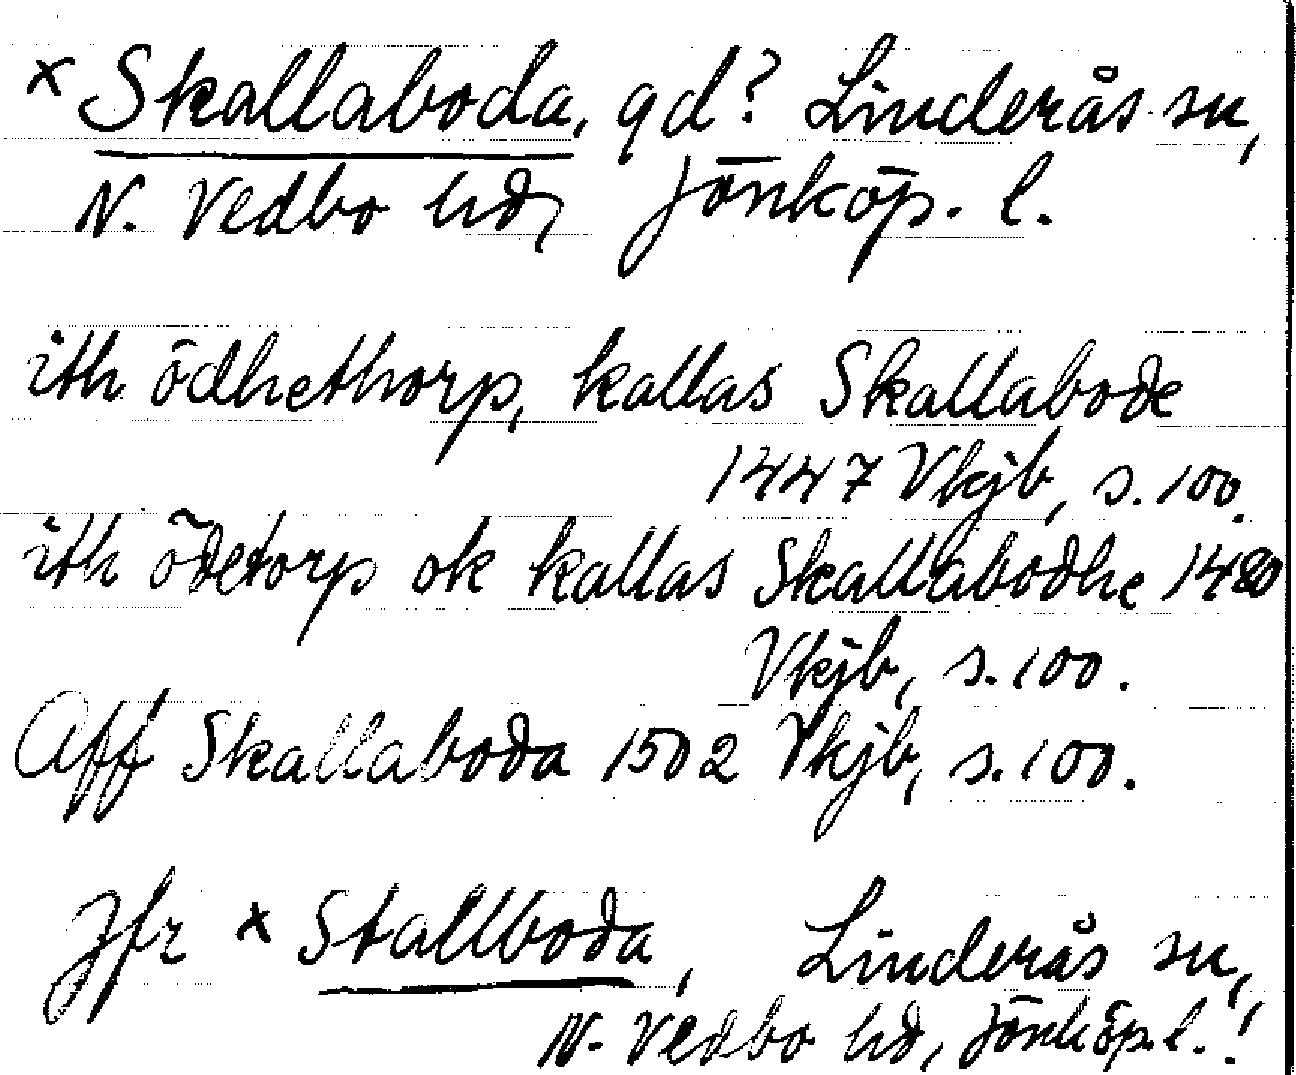 x Skallaboda, gd? Linderås sn,
N. Vedbo hd, Jönköp. l.
ith ödhethorp, kallas Skallabode
1447 Vkjb, s. 100.
ith ödetorp ok kallas Skallabodhe 1480
Vkjb, s. 100.
Aff Skallaboda 1502 Vkjb, s. 100.
Jfr x Stallboda, Linderås sn,
N. Vedbo hd, Jönköp. l.!